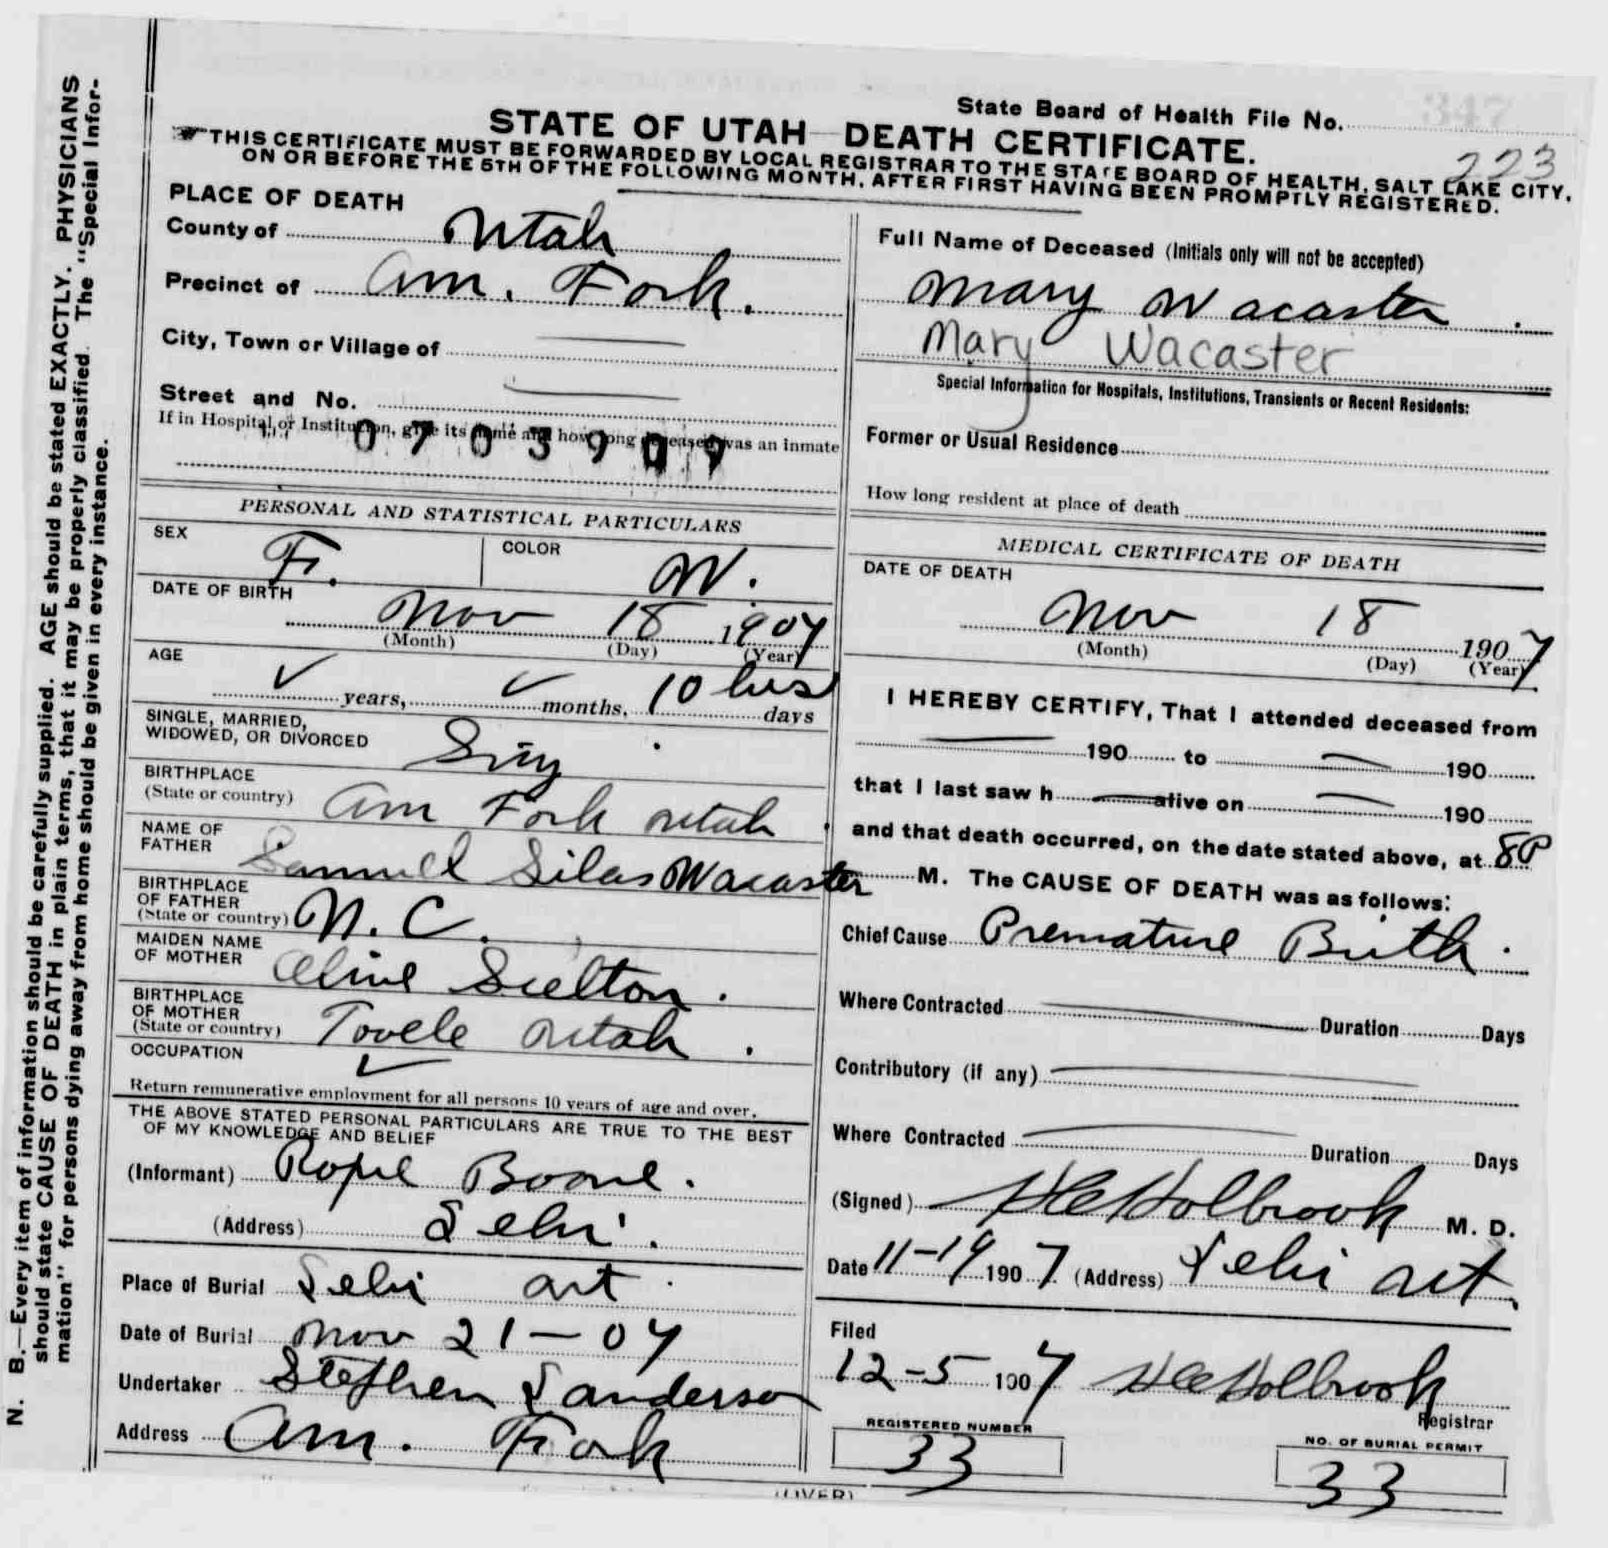 State Board of Health File No. 347
STATE OF UTAH—DEATH CERTIFICATE. 223
THIS CERTIFICATE MUST BE FORWARDED BY LOCAL REGISTRAR TO THE STATE BOARD OF HEALTH, SALT LAKE CITY,
ON OR BEFORE THE 5TH OF THE FOLLOWING MONTH, AFTER FIRST HAVING BEEN PROMPTLY REGISTERED.
PLACE OF DEATH
County of Utah
Precinct of Am. Fork.
City, Town or Village of
Street and No.
If in Hospital or Institution, give its name and how long deceased was an inmate
PERSONAL AND STATISTICAL PARTICULARS
SEX F. COLOR W.
DATE OF BIRTH Nov 18 1907
(Month) (Day) (Year)
AGE years, months, 10 hrs days
SINGLE, MARRIED,
WIDOWED, OR DIVORCED Sing
BIRTHPLACE
(State or country) Am Fork Utah
NAME OF
FATHER Samuel Silas Wacaster
BIRTHPLACE
OF FATHER
(State or country) N. C.
MAIDEN NAME
OF MOTHER
BIRTHPLACE
OF MOTHER
(State or country) Tooele Utah.
OCCUPATION
Return remunerative employment for all persons 10 years of age and over.
THE ABOVE STATED PERSONAL PARTICULARS ARE TRUE TO THE BEST
OF MY KNOWLEDGE AND BELIEF
(Informant) Boone.
(Address) Lehi.
Place of Burial Lehi Ut
Date of Burial Nov 21-07
Undertaker Stephen
Address Am. Fork
Full Name of Deceased (Initials only will not be accepted)
Mary Wacaster.
Mary Wacaster
Special Information for Hospitals, Institutions, Transients or Recent Residents:
Former or Usual Residence
How long resident at place of death
MEDICAL CERTIFICATE OF DEATH
DATE OF DEATH
Nov 18 1907
(Month) (Day) (Year)
I HEREBY CERTIFY, That I attended deceased from
190 to 190
that I last saw h alive on 190
and that death occurred, on the date stated above, at 8P
M. The CAUSE OF DEATH was as follows:
Chief Cause Premature Birth.
Where Contracted Duration Days
Contributory (if any)
Where Contracted Duration Days
(Signed) Holbrook M. D.
Date 11-19 1907 (Address) Lehi Ut.
Filed
12-5 1907 Holbrook
Registrar
REGISTERED NUMBER
33
NO. OF BURIAL PERMIT
33
(OVER)
N. B.—Every item of information should be carefully supplied. AGE should be stated EXACTLY. PHYSICIANS
should state CAUSE OF DEATH in plain terms, that it may be properly classified. The "Special Infor-
mation" for persons dying away from home should be given in every instance.